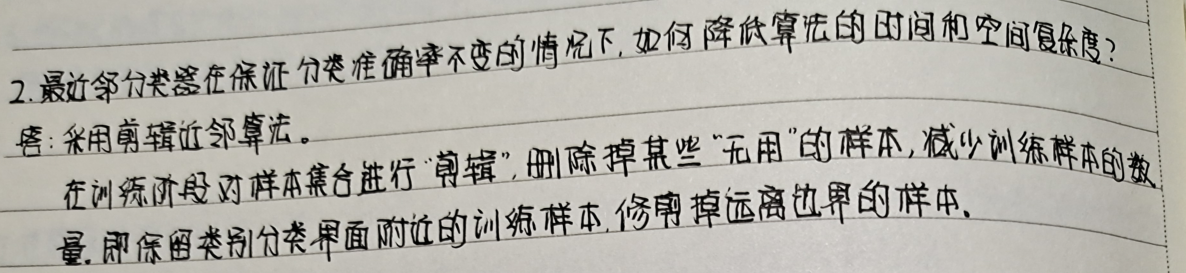 2.最近邻分类器在保证分类准确率不变的情况下,如何降低算法的时间和空间复杂度?
答:采用剪辑近邻算法。
在训练阶段对样本集合进行“剪辑”,删除掉某些“无用”的样本,减少训练样本的数
量.即保留类别分类界面附近的训练样本,修剪掉远离边界的样本.